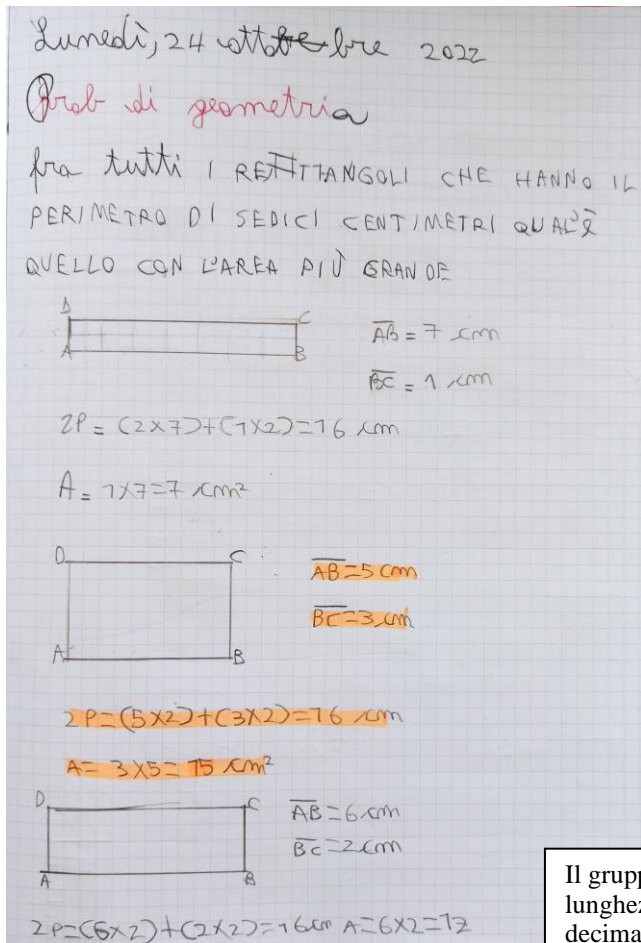 Lunedì, 24 ottobre 2022
Prob di geometria
fra tutti I RETTANGOLI CHE HANNO IL
PERIMETRO DI SEDICI CENTIMETRI QUAL'È
QUELLO CON L'AREA PIÙ GRANDE
D C
A B
AB = 7 cm
BC = 1 cm
2P = (2×7)+(1×2)=16 cm
A = 1×7=7 cm²
D C
A B
AB=5 cm
BC=3 cm
2P=(5×2)+(3×2)=16 cm
A= 3×5= 15 cm²
D C
A B
AB=6 cm
BC=2 cm
2P=(6×2)+(2×2)=16cm A=6×2=12
Il grupp
lunghez
decima